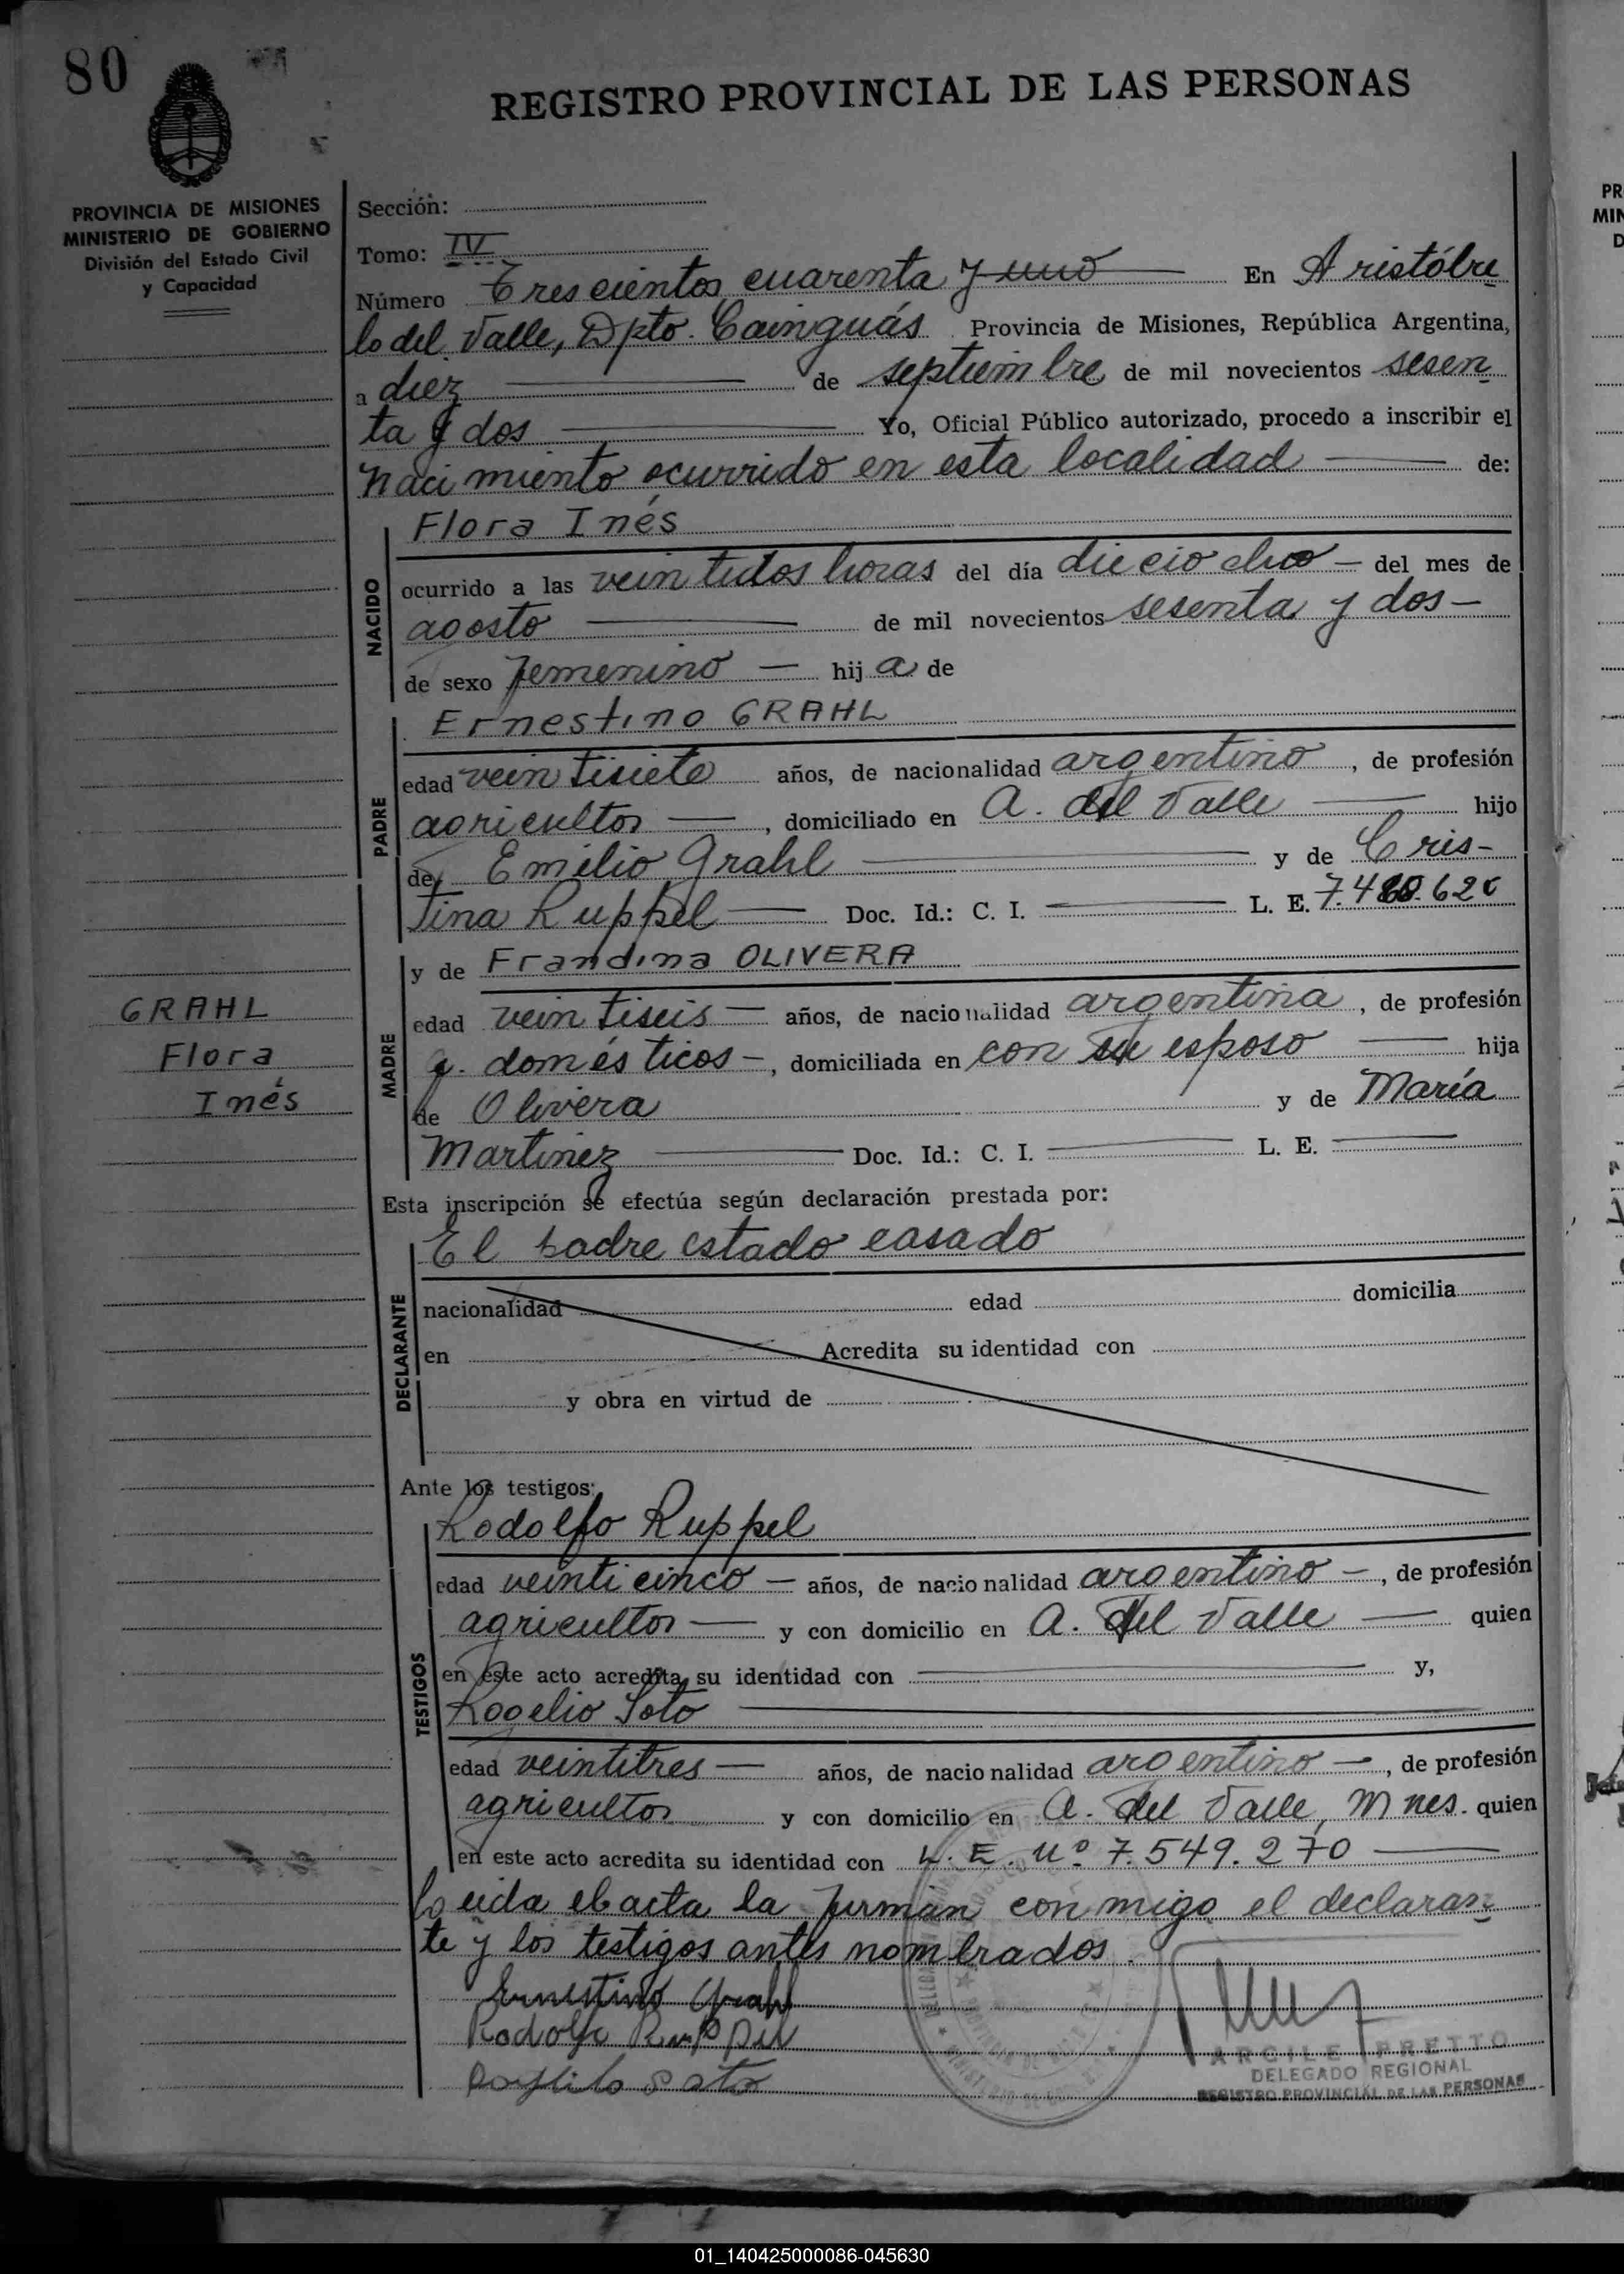 80
REGISTRO PROVINCIAL DE LAS PERSONAS
PROVINCIA DE MISIONES
MINISTERIO DE GOBIERNO
División del Estado Civil
y Capacidad
Sección:
Tomo: IV
Número Trescientos cuarenta y uno En Aristóbu
lo del Valle, Dpto. Cainguás Provincia de Misiones, República Argentina,
a diez de septiembre de mil novecientos sesen
ta y dos Yo, Oficial Público autorizado, procedo a inscribir el
nacimiento ocurrido en esta localidad de:
NACIDO
Flora Inés
ocurrido a las veintidos horas del día dieciocho — del mes de
agosto de mil novecientos sesenta y dos —
de sexo femenino — hija de
PADRE
Ernestino GRAHL
edad veintisiete años, de nacionalidad argentino, de profesión
agricultor —, domiciliado en A. del Valle hijo
de Emilio Grahl y de Cris-
tina Ruppel Doc. Id.: C. I. L. E.
MADRE
y de Frandina OLIVERA
edad veintiseis — años, de nacionalidad argentina, de profesión
q. domésticos —, domiciliada en con su esposo hija
de Olivera y de María
Martinez Doc. Id.: C. I. L. E.
GRAHL
Flora
Inés
Esta inscripción se efectúa según declaración prestada por:
DECLARANTE
El padre estado casado
nacionalidad edad domicilia
en Acredita su identidad con
y obra en virtud de
Ante los testigos:
TESTIGOS
Rodolfo Ruppel
edad veinticinco — años, de nacionalidad argentino —, de profesión
agricultor — y con domicilio en A. del Valle — quien
en este acto acredita su identidad con y,
Rogelio Soto
edad veintitres — años, de nacionalidad argentino —, de profesión
agricultor y con domicilio en A. del Valle, Mnes. quien
en este acto acredita su identidad con L. E. Nº 7.549.270
Leida el acta la firman conmigo el declaran
te y los testigos antes nombrados.
Ernestino Grahl
Rodolfo Ruppel
Rogelio Soto
ARGILE PRETTO
DELEGADO REGIONAL
REGISTRO PROVINCIAL DE LAS PERSONAS
01_140425000086-045630